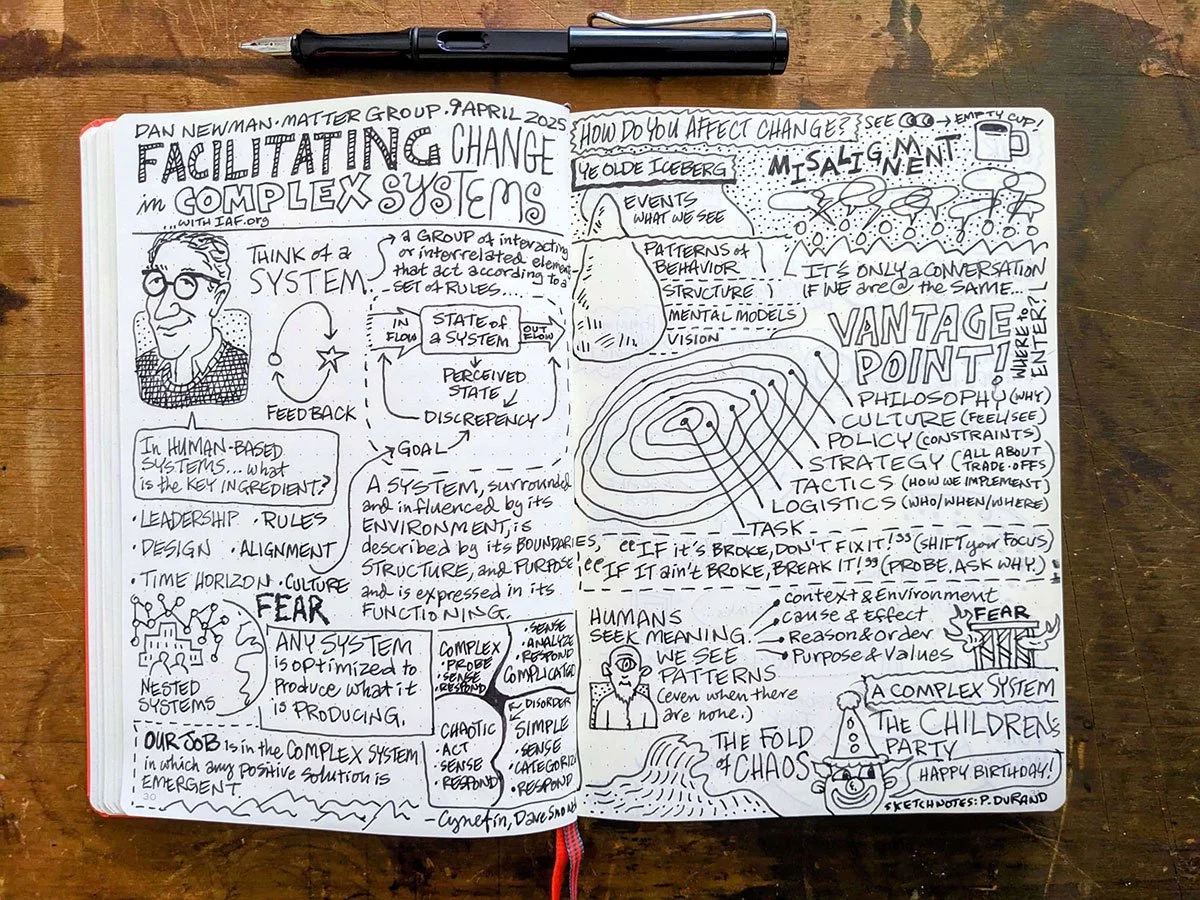 DAN NEWMAN · MATTER GROUP · 9 APRIL 2025
FACILITATING CHANGE
in COMPLEX SYSTEMS
...WITH IAF.org
THINK of a
SYSTEM
a GROUP of interacting
or interrelated
that act according to a
SET of RULES...
FEEDBACK
IN
FLOW
STATE of
a SYSTEM
OUT
FLOW
PERCEIVED
STATE
DISCREPENCY
GOAL
In HUMAN-BASED
SYSTEMS... what
is the KEY INGREDIENT?
· LEADERSHIP · RULES
· DESIGN · ALIGNMENT
· TIME HORIZON · CULTURE
FEAR
A SYSTEM, surrounded
and influenced by its
ENVIRONMENT, is
described by its BOUNDARIES,
STRUCTURE, and PURPOSE
and is expressed in its
FUNCTIONING.
NESTED
SYSTEMS
ANY SYSTEM
is optimized to
Produce what it
is PRODUCING.
COMPLEX
· PROBE
· SENSE
· RESPOND
· SENSE
· ANALYZE
· RESPOND
COMPLICATED
DISORDER
CHAOTIC
· ACT
· SENSE
· RESPOND
SIMPLE
· SENSE
· RESPOND
OUR JOB is in the COMPLEX SYSTEM
in which any positive solution is
EMERGENT
30
- Cynefin, Dave
HOW DO YOU AFFECT CHANGE?
SEE → EMPTY CUP!
YE OLDE ICEBERG
EVENTS
WHAT WE SEE
PATTERNS of
BEHAVIOR
STRUCTURE
MENTAL MODELS
VISION
MISALIGNMENT
IT'S ONLY a CONVERSATION
IF WE are @ the SAME...
VANTAGE
POINT!
WHERE to
ENTER?
PHILOSOPHY (WHY)
CULTURE (FEEL/SEE)
POLICY (CONSTRAINTS)
STRATEGY (ALL ABOUT
TRADE-OFFS)
TACTICS (HOW WE IMPLEMENT)
LOGISTICS (WHO/WHEN/WHERE)
TASK
"IF it's BROKE, DON'T FIX IT!" (SHIFT your FOCUS)
"IF IT ain't BROKE, BREAK IT!" (PROBE, ASK WHY)
HUMANS
SEEK MEANING.
context & Environment
Cause & Effect
Reason & Order
Purpose & Values
WE SEE
PATTERNS
(even when there
are none.)
FEAR
THE FOLD
of CHAOS
A COMPLEX SYSTEM
THE CHILDRENS
PARTY
HAPPY BIRTHDAY!
SKETCHNOTES: P. DURAND